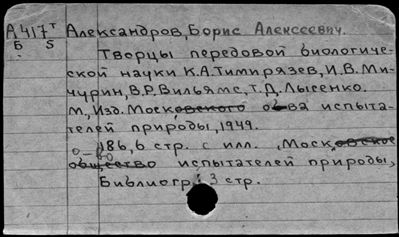 А417т Александров, Борис Алексеевич.
Б 5
Творцы передовой биологиче-
ской науки К.А.Тимирязев, И.В.Ми-
чурин, В.Р.Вильямс, Т.Д.Лысенко.
М., Изд. Московского о-ва испыта-
телей природы, 1949.
186,6 стр. с илл. (Московское
общество испытателей природы,
Библиогр.: 3 стр.